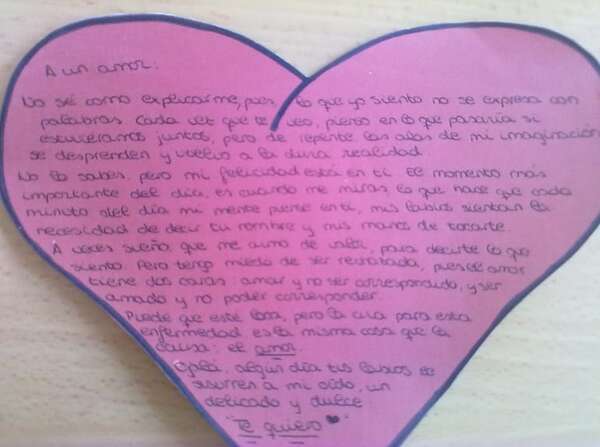 A un amor:
No sé como explicarme, pues, lo que yo siento no se expresa con
palabras. Cada vez que te veo, pienso en lo que pasaría si
estuvieramos juntos, pero de repente las alas de mi imaginación
se desprenden y vuelvo a la dura realidad.
No lo sabes, pero mi felicidad está en ti. El momento más
importante del día, es cuando me miras, lo que hace que cada
minuto del día mi mente piense en ti, mis labios sientan la
necesidad de decir tu nombre y mis manos de tocarte.
A veces sueño que me armo de valor, para decirte lo que
siento. Pero tengo miedo de ser rechazada, pues el amor
tiene dos caras: amar y no ser correspondido, y ser
amado y no poder corresponder.
Puede que esté loca, pero la cura para esta
enfermedad es la misma cosa que la
causa: el amor.
Ojalá, algún día tus labios le
susurren a mi oído, un
delicado y dulce
"Te quiero ♥"